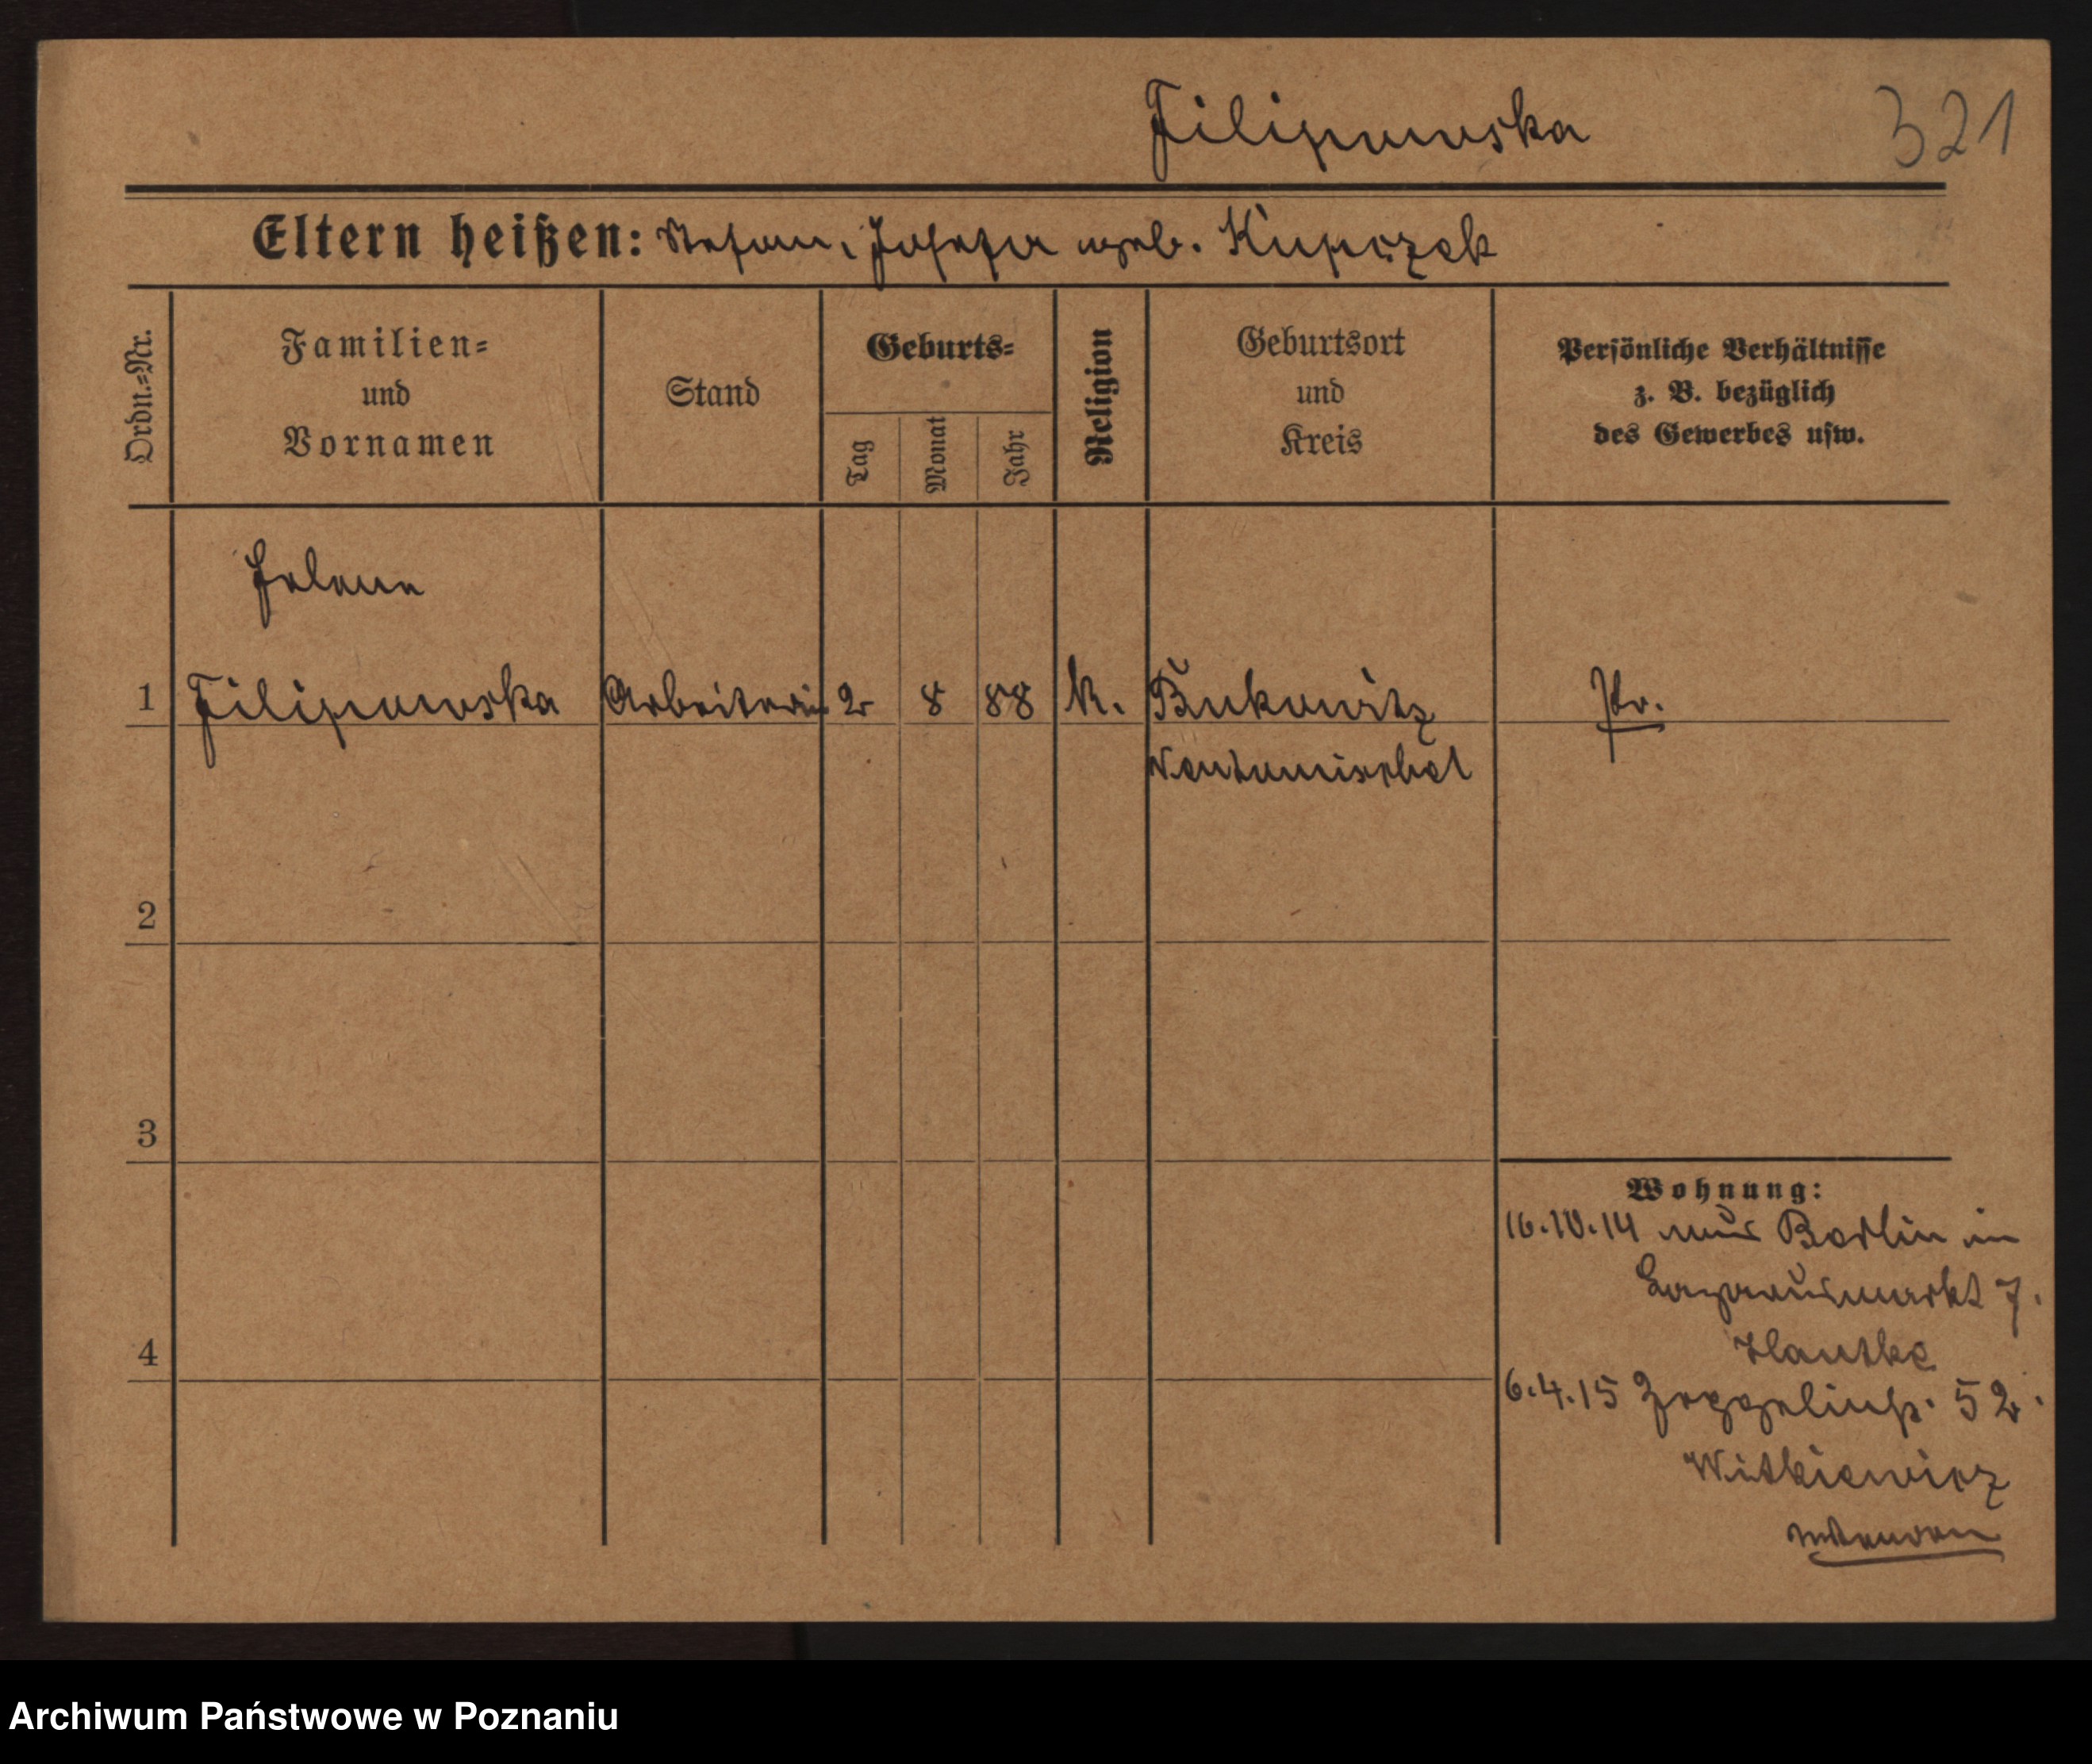 Filipowska
321
Eltern heißen: Stefan, Josefa geb. Kupczek
Ordn.=Nr.
Familien=
und
Vornamen
Stand
Geburts=
Tag
Monat
Jahr
Religion
Geburtsort
und
Kreis
Persönliche Verhältnisse
z. B. bezüglich
des Gewerbes usw.
Helene
1 Filipowska Arbeiterin 2 8 88 k. Bukowitz Pr.
Neutomischel
2
3
4
Wohnung:
16.10.14 aus Berlin in
Lazarusmarkt 7.
6.4.15 Zeppelinstr. 52.
Witkiewicz
Archiwum Państwowe w Poznaniu